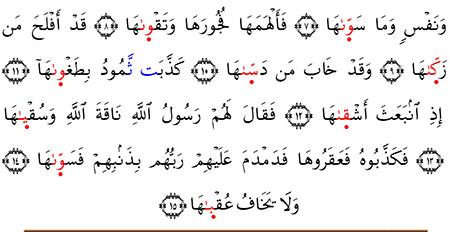 وَنَفْسٖ وَمَا سَوّ۪ىٰهَا ﴿٧﴾ فَأَلْهَمَهَا فُجُورَهَا وَتَقْو۪ىٰهَا ﴿٨﴾ قَدْ أَفْلَحَ مَن
زَكّ۪ىٰهَا ﴿٩﴾ وَقَدْ خَابَ مَن دَسّ۪ىٰهَا ﴿١٠﴾ كَذَّبَت ثَّمُودُ بِطَغْو۪ىٰهَآ ﴿١١﴾
إِذِ ٱنۢبَعَثَ أَشْق۪ىٰهَا ﴿١٢﴾ فَقَالَ لَهُمْ رَسُولُ ٱللَّهِ نَاقَةَ ٱللَّهِ وَسُقْي۪ىٰهَا
﴿١٣﴾ فَكَذَّبُوهُ فَعَقَرُوهَا فَدَمْدَمَ عَلَيْهِمْ رَبُّهُم بِذَنۢبِهِمْ فَسَوّ۪ىٰهَا ﴿١٤﴾
وَلَا يَخَافُ عُقْب۪ىٰهَا ﴿١٥﴾